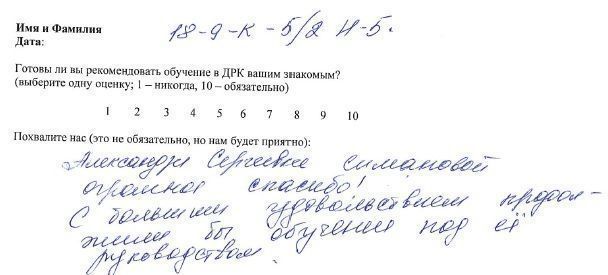 Имя и Фамилия 18-9-К-5/2 Н-5.
Дата:
Готовы ли вы рекомендовать обучение в ДРК вашим знакомым?
(выберите одну оценку; 1 – никогда, 10 – обязательно)
1 2 3 4 5 6 7 8 9 10
Похвалите нас (это не обязательно, но нам будет приятно):
Александре Сергеевне Симановой
огромное спасибо!
С большим удовольствием продол-
жили бы обучение под её
руководством.